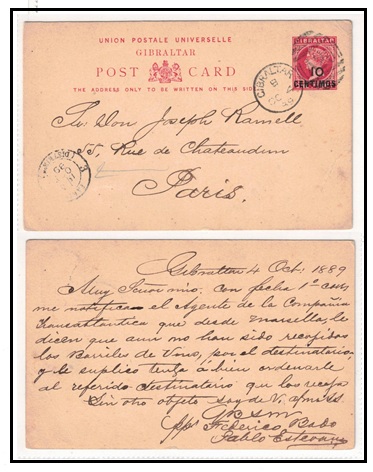 UNION POSTALE UNIVERSELLE
GIBRALTAR
POST CARD
THE ADDRESS ONLY TO BE WRITTEN ON THIS SIDE
GIBRALTAR
10
CENTIMOS
GIBRALTAR
Don Joseph Ramell
55, Rue de Chateaudun
Paris.
Gibraltar 4 Oct. 1889
Muy Señor mio: con fecha 1º
me notifica el Agente de la Compañia
Transatlantica que desde Marsella, le
dicen que aun no han sido recogidos
los Barriles de Vino, por el destinatario,
y le suplico tenga á bien ordenarle
al referido destinatario que los recoja
Sin otro objeto soy de V. afmo SS.
QBSM
pp. Federico
Pablo